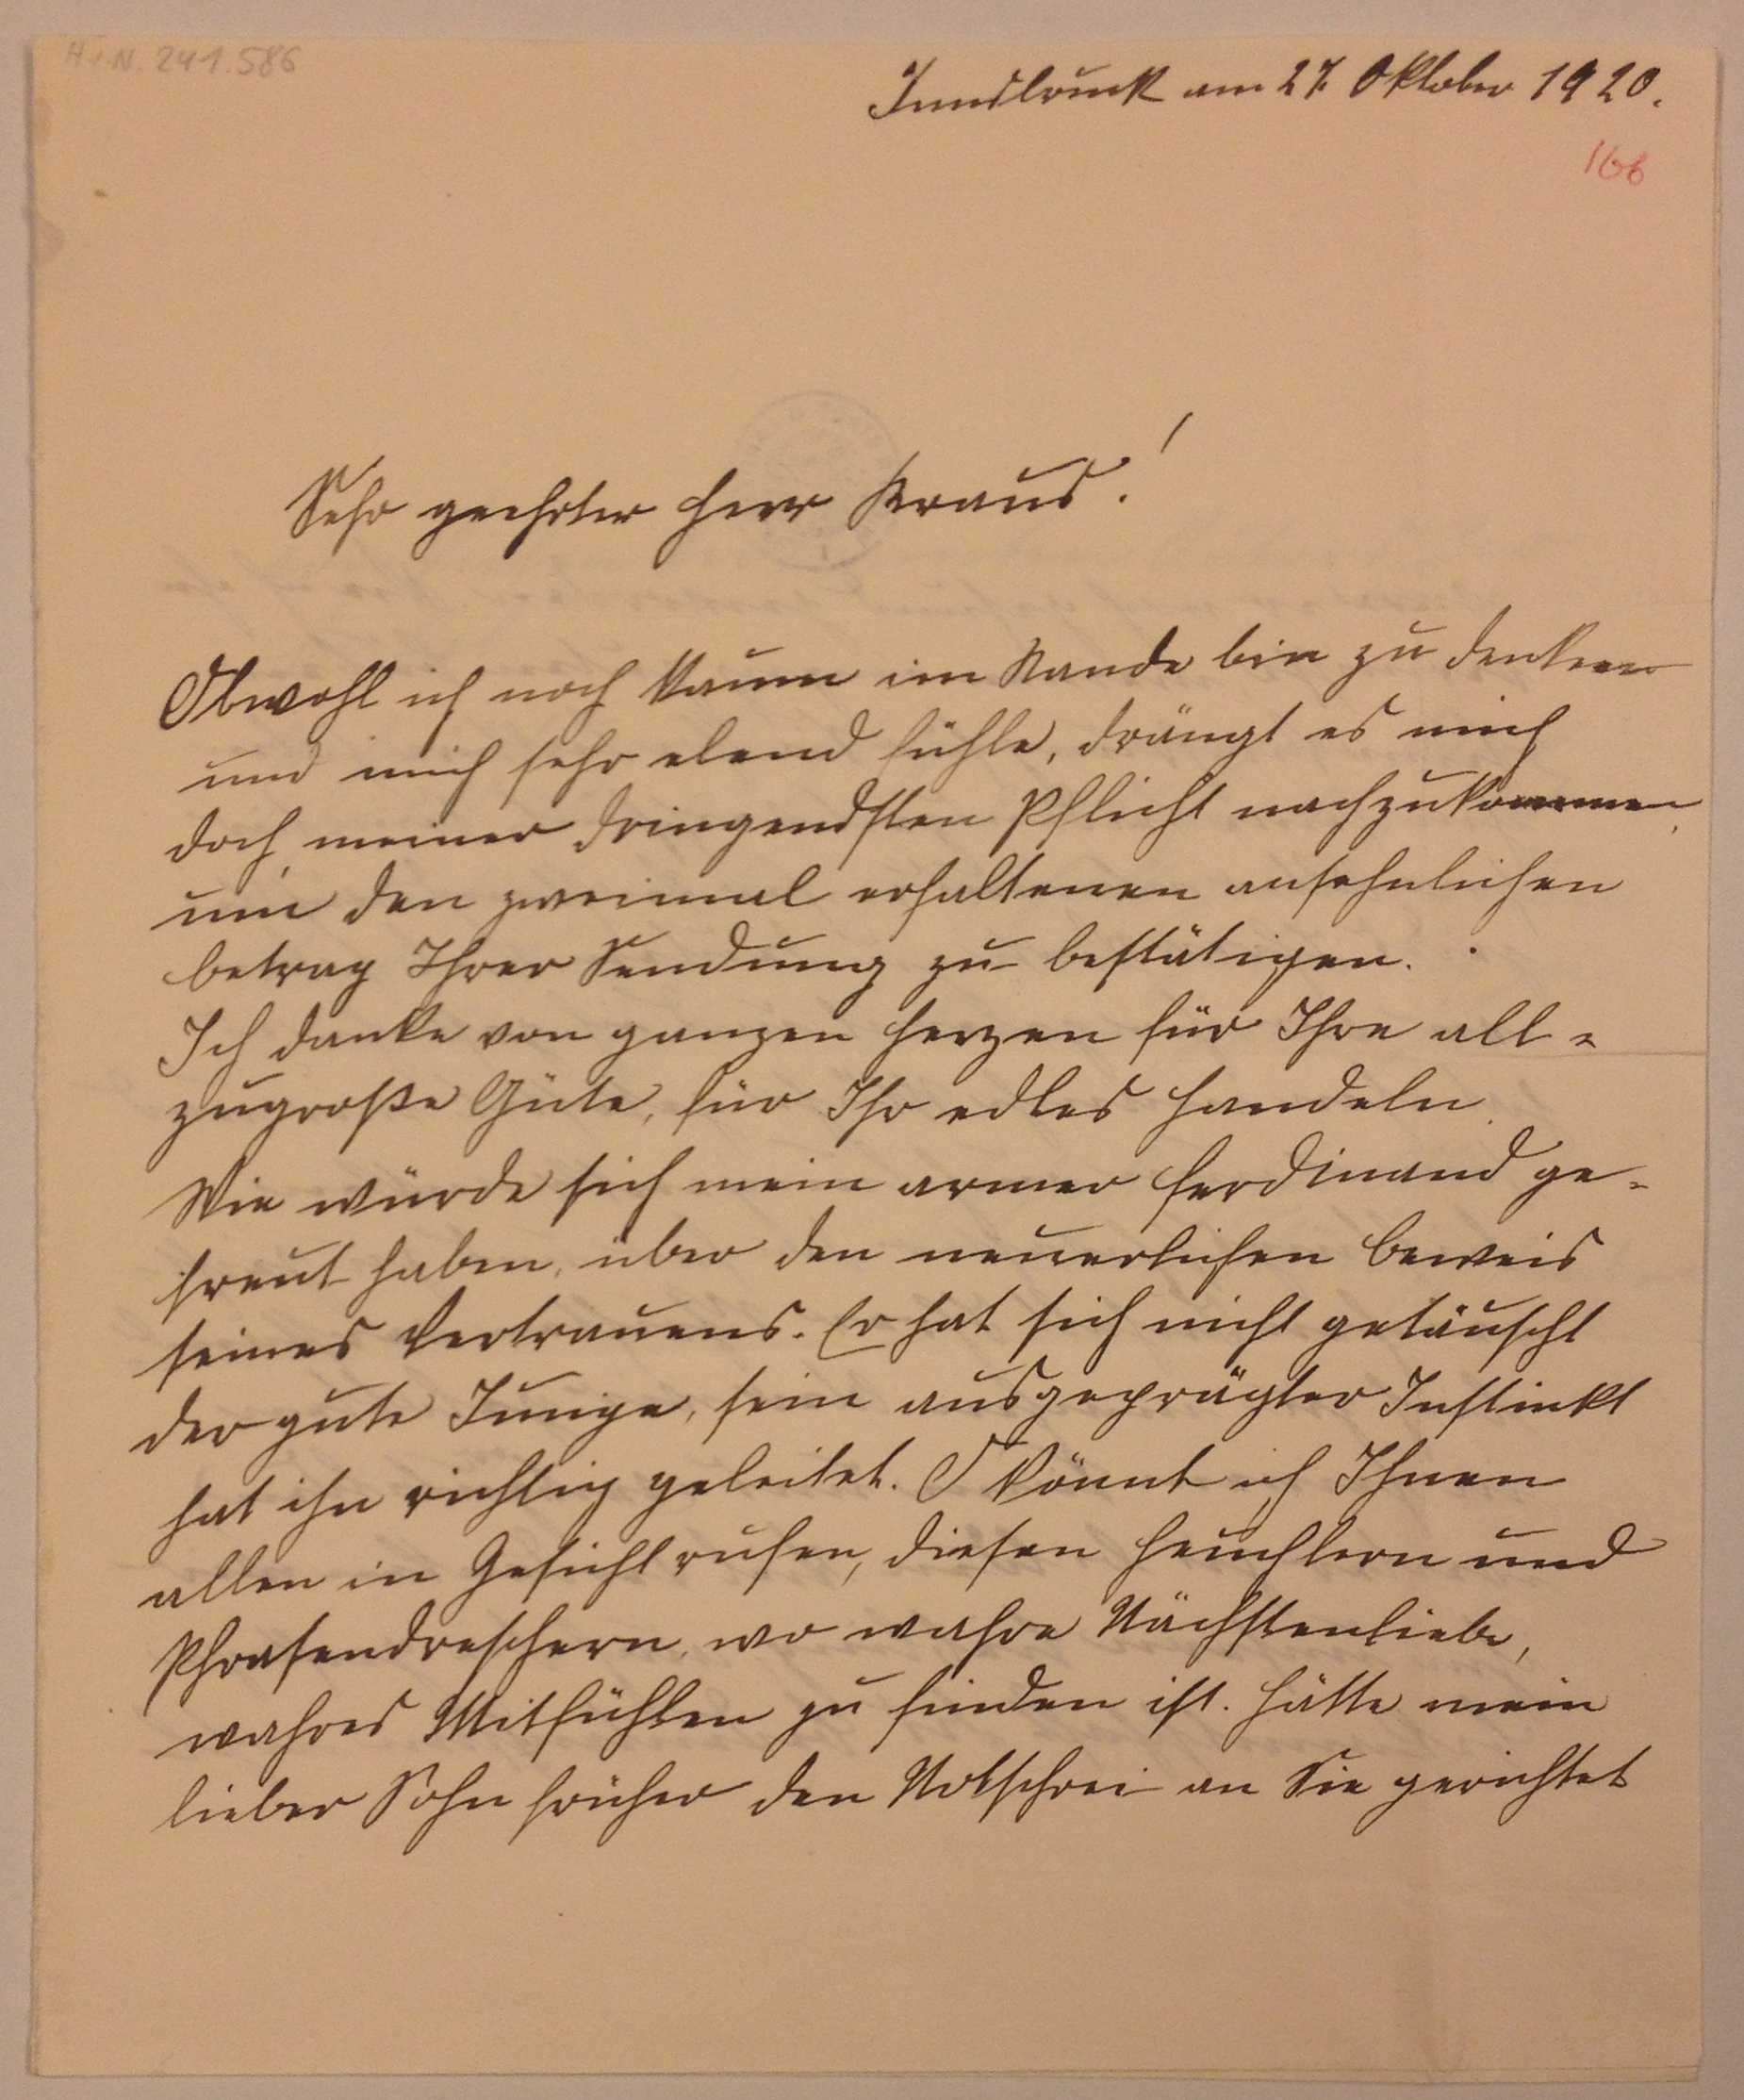 H.I.N. 241.586
Innsbruck am 27. Oktober 1920.
166
Sehr geehrter Herr Kraus!
Obwohl ich noch kaum im Stande bin zu denken
und mich sehr elend fühle, drängt es mich
doch, meiner dringendsten Pflicht nachzukommen,
um den zweimal erhaltenen ansehnlichen
Betrag Ihrer Sendung zu bestätigen.
Ich danke von ganzen Herzen für Ihre all-
zugroße Güte, für Ihr edles Handeln.
Wie würde sich mein armer Ferdinand ge-
freut haben, über den neuerlichen Beweis
seines Vertrauens. Er hat sich nicht getäuscht
der gute Junge, sein ausgeprägter Instinkt
hat ihn richtig geleitet. O könnt ich Ihnen
allen in Gesicht rufen, diesen Heuchlern und
Phrasendreschern, wo wahre Nächstenliebe,
wahres Mitfühlen zu finden ist. Hätte mein
lieber Sohn früher den Notschrei an Sie gerichtet